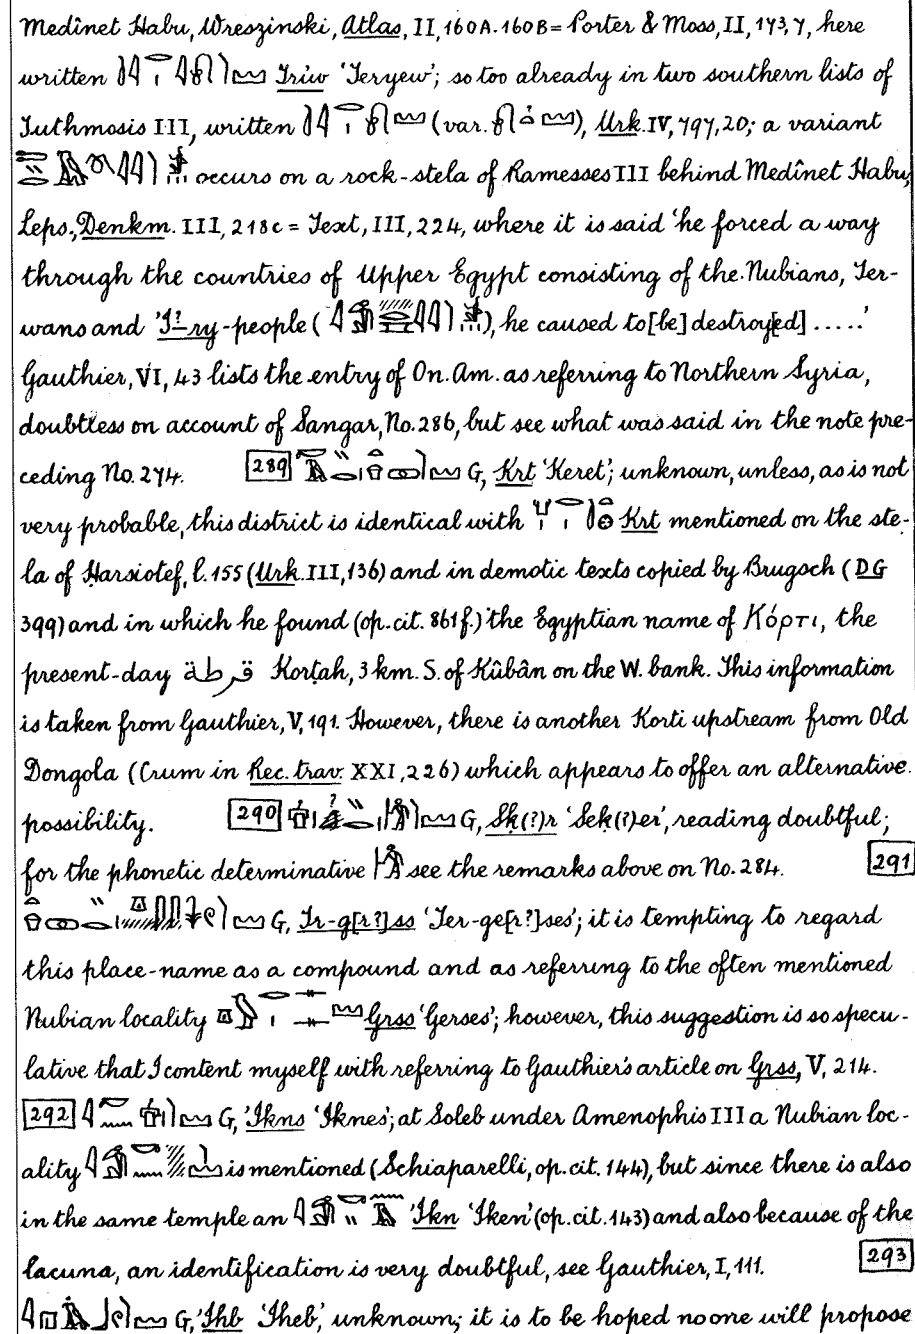 Medînet Habu, Wreszinski, Atlas, II, 160A. 160B = Porter & Moss, II, 173, 7, here
written Iriw 'Teryew'; so too already in two southern lists of
Tuthmosis III, written (var. ), Urk. IV, 797, 20; a variant
occurs on a rock-stela of Ramesses III behind Medînet Habu,
Leps., Denkm. III, 218c = Text, III, 224, where it is said 'he forced a way
through the countries of Upper Egypt consisting of the Nubians, Ter-
wans and -people ( ), he caused to [be] destroy[ed] .....'
Gauthier, VI, 43 lists the entry of On. Am. as referring to Northern Syria,
doubtless on account of Sangar, No. 286, but see what was said in the note pre-
ceding No. 274. 289 G, Krt 'Keret'; unknown, unless, as is not
very probable, this district is identical with Krt mentioned on the ste-
la of Ḥarsiotef, l. 155 (Urk. III, 136) and in demotic texts copied by Brugsch (DG
399) and in which he found (op. cit. 861 f.) the Egyptian name of Κόρτι, the
present-day قرطة Ḳorṭah, 3 km. S. of Ḳûbân on the W. bank. This information
is taken from Gauthier, V, 191. However, there is another Korti upstream from Old
Dongola (Crum in Rec. trav. XXI, 226) which appears to offer an alternative
possibility. 290 G, Sḳ(?)r 'Seḳ(?)er', reading doubtful;
for the phonetic determinative see the remarks above on No. 284. 291
G, Tr-g[r?]ss 'Ter-ge[r?]ses'; it is tempting to regard
this place-name as a compound and as referring to the often mentioned
Nubian locality Grss 'Gerses'; however, this suggestion is so specu-
lative that I content myself with referring to Gauthier's article on Grss, V, 214.
292 G, 'Ikns 'Iknes'; at Soleb under Amenophis III a Nubian loc-
ality is mentioned (Schiaparelli, op. cit. 144), but since there is also
in the same temple an 'Ikn 'Iken' (op. cit. 143) and also because of the
lacuna, an identification is very doubtful, see Gauthier, I, 111. 293
G, 'Ihb 'Iheb', unknown; it is to be hoped no one will propose